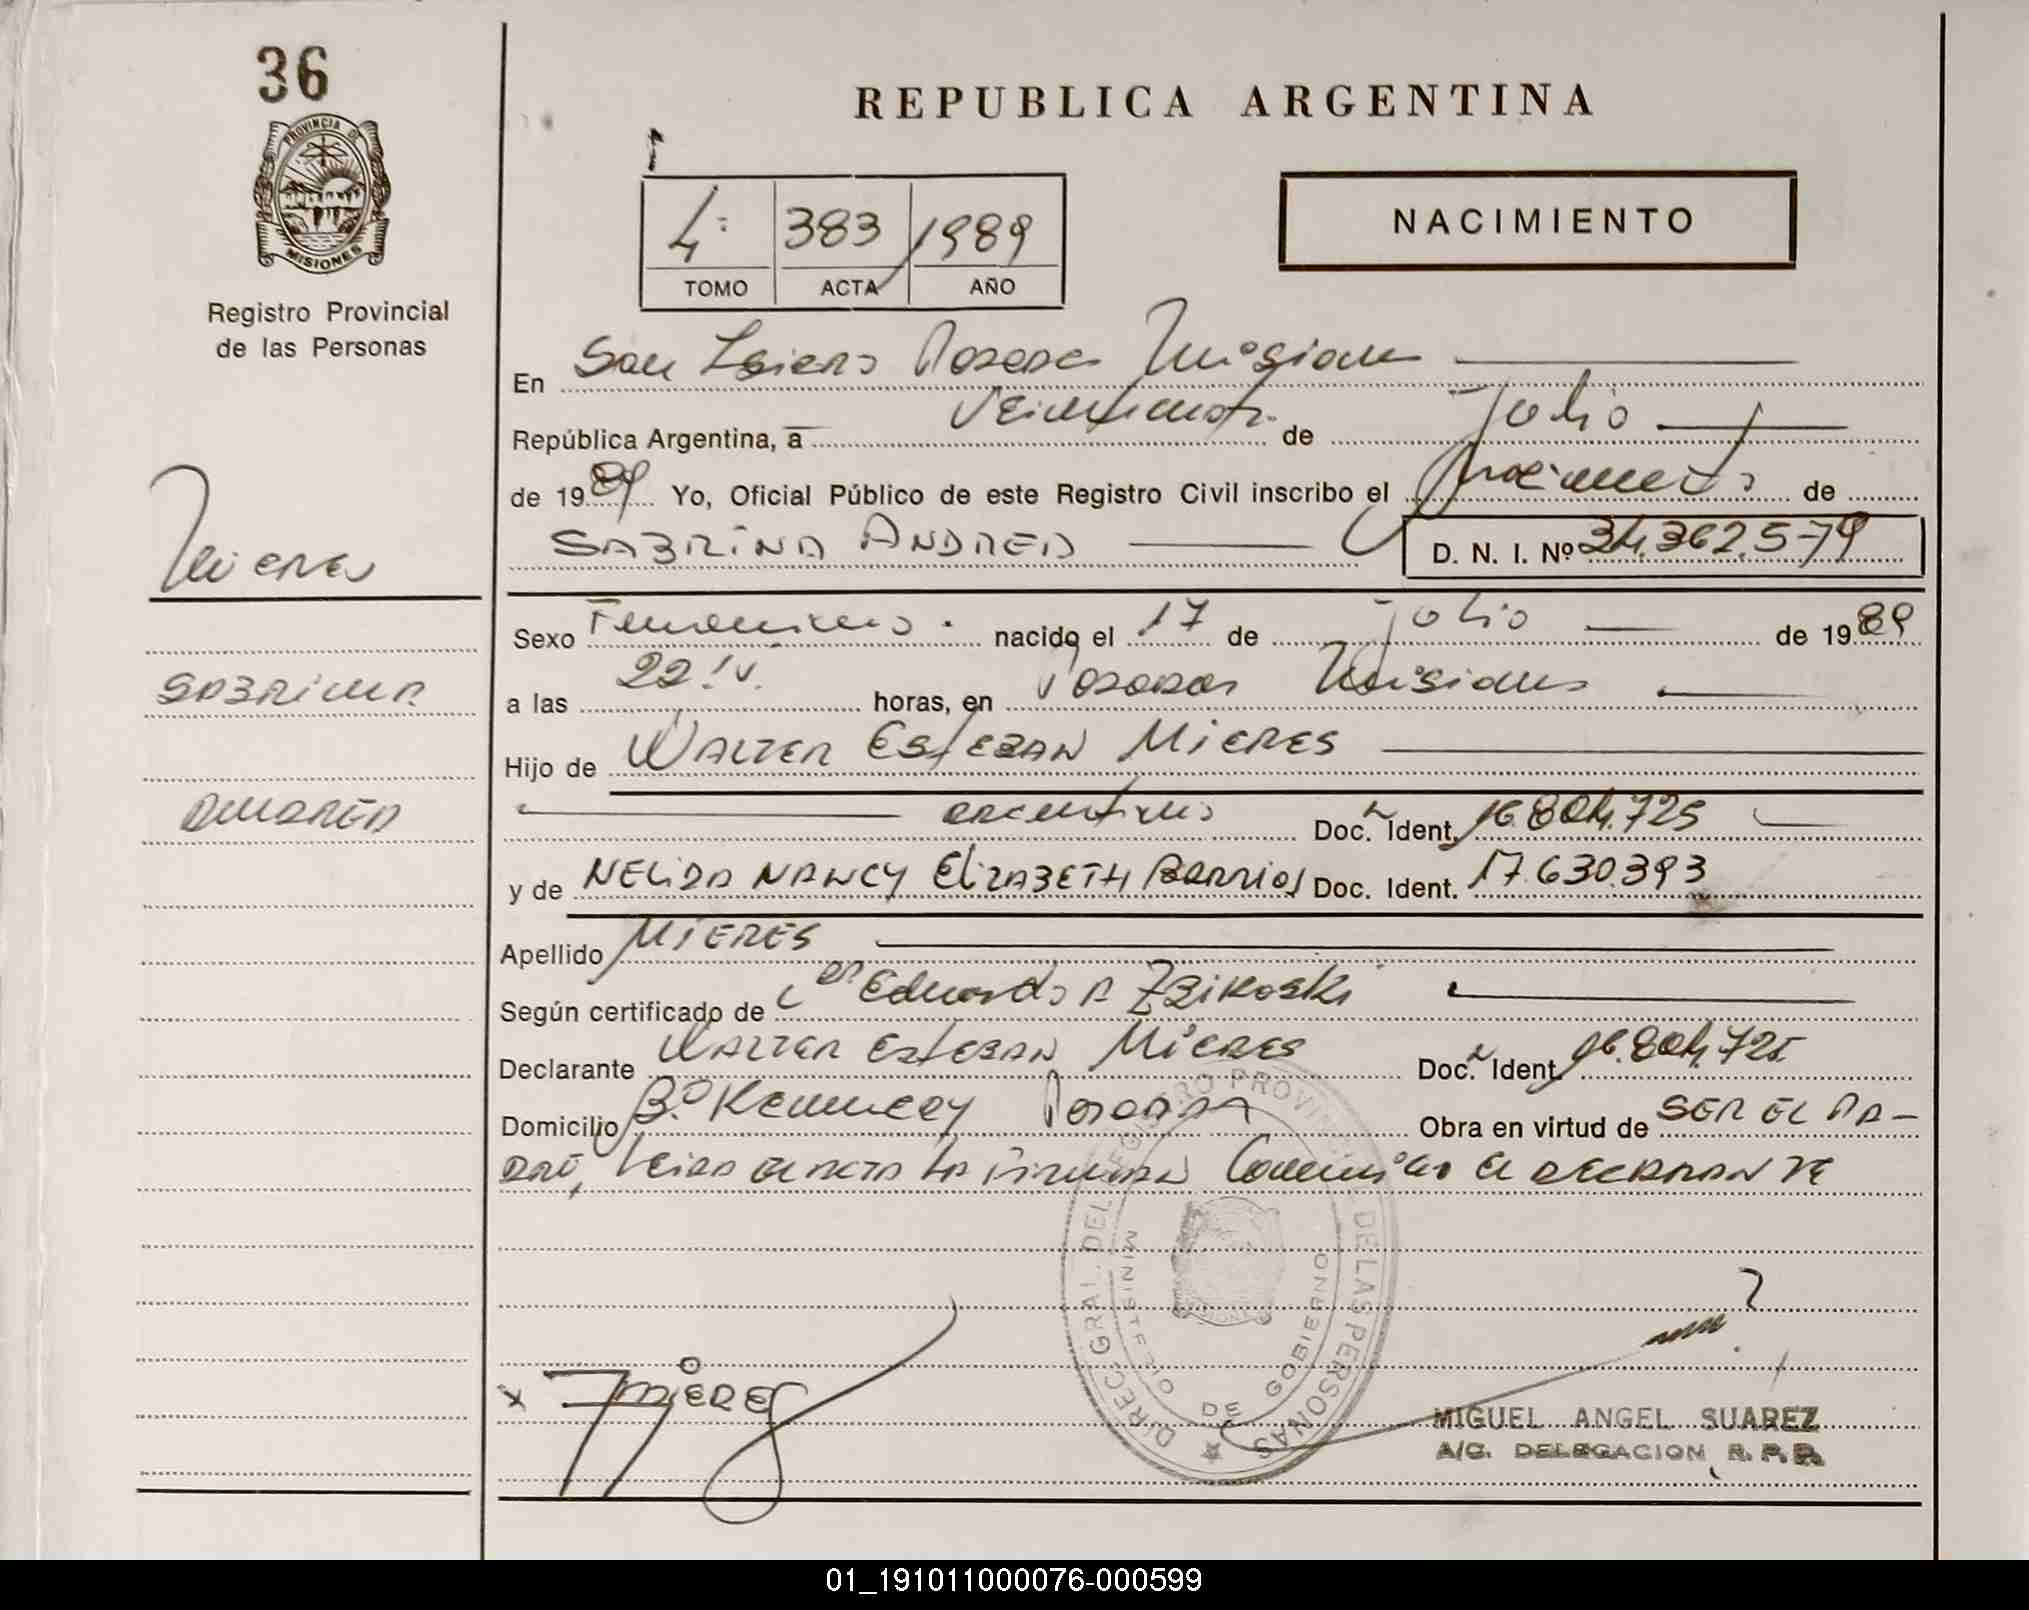 36
PROVINCIA DE
MISIONES
Registro Provincial
de las Personas
REPUBLICA ARGENTINA
4º 383 1989
TOMO ACTA AÑO
NACIMIENTO
En San Isidro Posadas Misiones
República Argentina, a de Julio
de 1989 Yo, Oficial Público de este Registro Civil inscribo el nacimiento de
SABRINA ANDREA
D. N. I. Nº 34.362.579
Mieres
SABRINA
ANDREA
Sexo Femenino. nacido el 17 de julio de 1989
a las 22 horas, en Posadas Misiones
Hijo de WALTER ESTEBAN MIERES
argentino Doc. Ident. 16.804.725
y de NELIDA NANCY ELIZABETH Barrios Doc. Ident. 17.630.393
Apellido MIERES
Según certificado de Eduardo A
Declarante WALTER ESTEBAN MIERES Doc. Ident. 16.804.725
Domicilio Bº Kennedy Posadas Obra en virtud de SER EL PA-
DRE, Leida el acta la firma Conmigo el declarante
DIREC. GRAL. DEL REGISTRO PROVINCIAL DE LAS PERSONAS
MINISTERIO DE GOBIERNO
x Mieres
MIGUEL ANGEL SUAREZ
A/C. DELEGACION R. P. P.
01_191011000076-000599